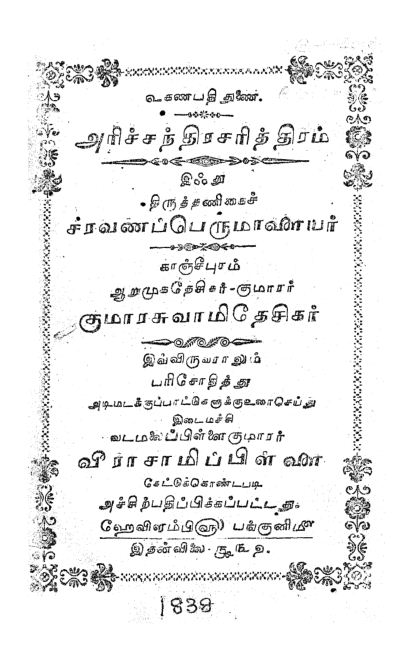 உ கணபதி துணை.
அரிச்சந்திரசரித்திரம்
இஃது
திருத்தணிகைச்
சரவணப்பெருமாளையர்
காஞ்சீபுரம்
ஆறுமுகதேசிகர்-குமாரர்
குமாரசுவாமிதேசிகர்
இவ்விருவராலும்
பரிசோதித்து
அடிமடக்குப்பாட்டுகளுக்குஉரைசெய்து
இடைமச்சி
வடமலைப்பிள்ளைகுமாரர்
வீராசாமிப்பிள்ளை
கேட்டுக்கொண்டபடி
அச்சிற்பதிப்பிக்கப்பட்டது.
ஹேவிளம்பி௵ பங்குனி௴
இதன்விலை-
183